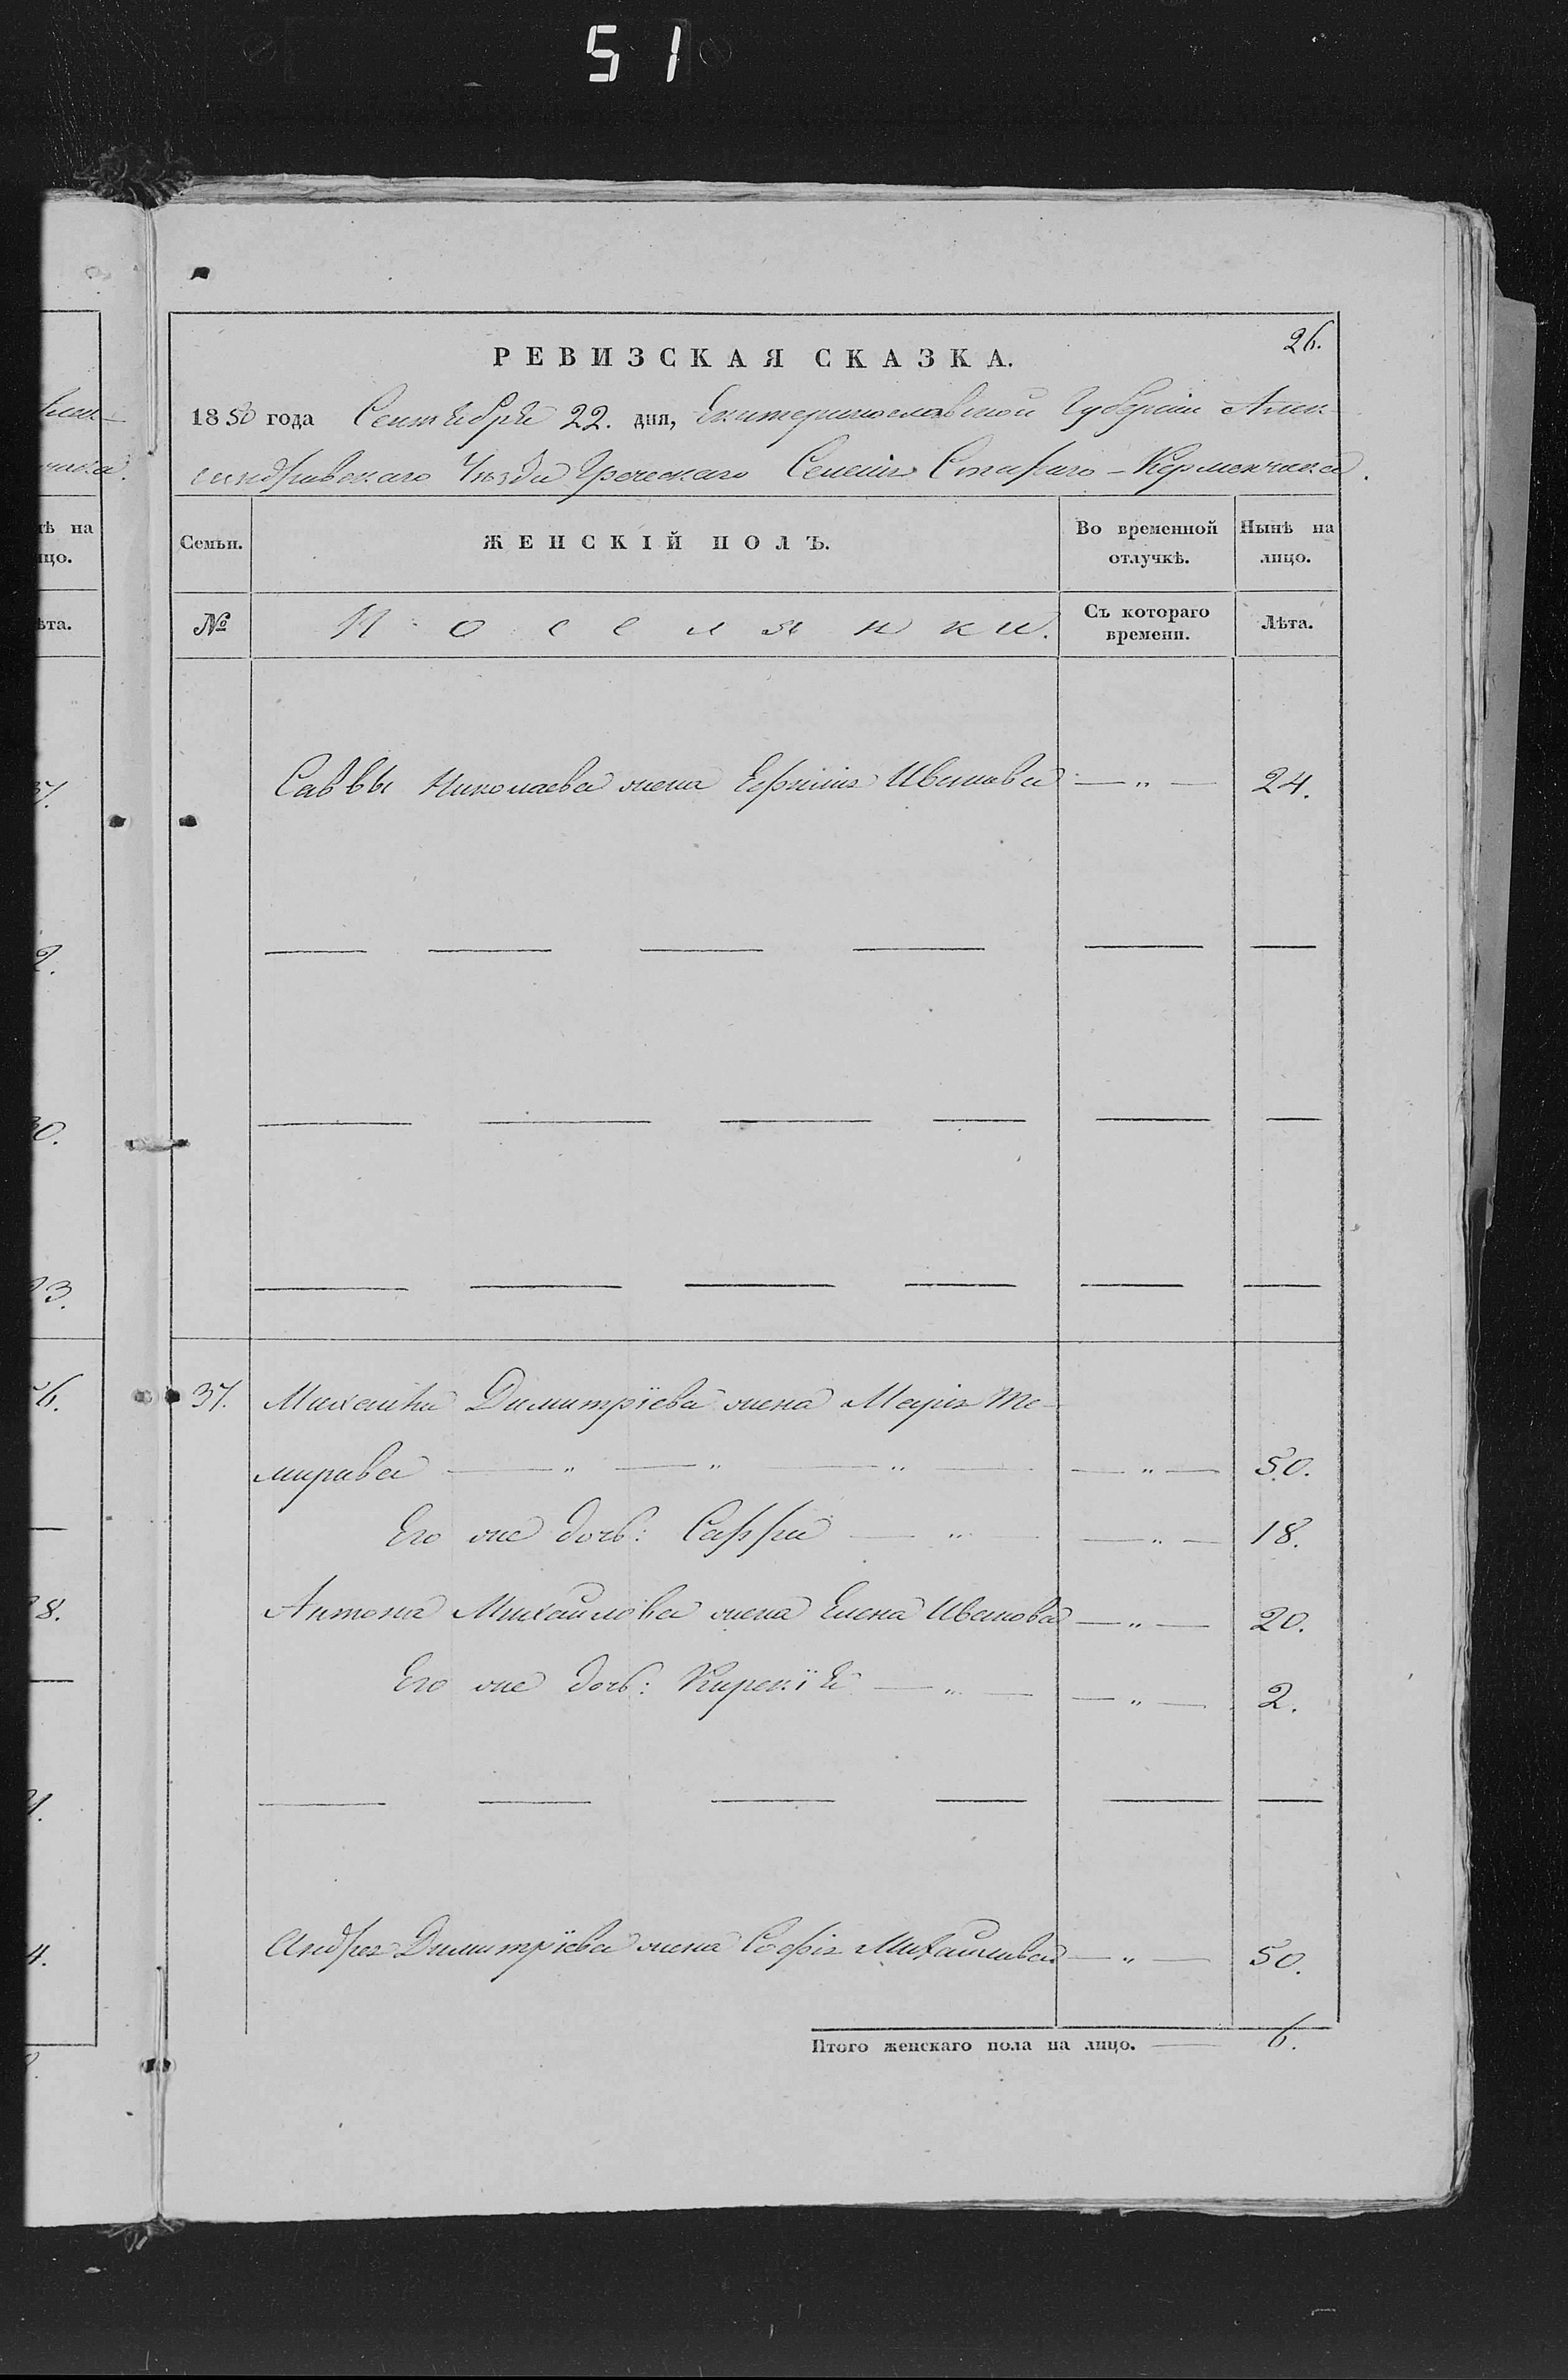 51
26.
РЕВИЗСКАЯ СКАЗКА.
1850 года Сентября 22. дня, Екатеринославской Губерніи Алек-
сандровскаго Уѣзда Греческаго Селенія Стараго-Керменчика.
Семьи.
ЖЕНСКІЙ ПОЛЪ.
Во временной отлучкѣ.
Нынѣ на лицо.
№
Поселянки.
Съ котораго времени.
Лѣта.
Саввы Николаева жена Ефимія Иванова — " — 24.
37. Михайла Димитріева жена Марія Те-
мирова — " — " — " — — " — 50.
Его же дочь: Сафра — " — " — 18.
Антона Михайлова жена Елена Иванова — " — 20.
Его же дочь: Кирекія — " — — " — 2.
Андрея Димитріева жена Софія Михайлова — " — 50.
Итого женскаго пола на лицо. — 6.
ѣ на
цо.
ѣта.